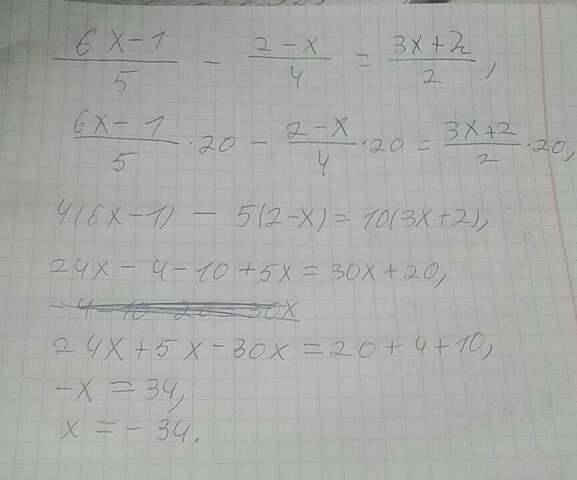 (6x-1)/5 - (2-x)/4 = (3x+2)/2,
(6x-1)/5 · 20 - (2-x)/4 · 20 = (3x+2)/2 · 20,
4(6x-1) - 5(2-x) = 10(3x+2),
24x - 4 - 10 + 5x = 30x + 20,
-4-10-20=30x
24x + 5x - 30x = 20 + 4 + 10,
-x = 34,
x = - 34.